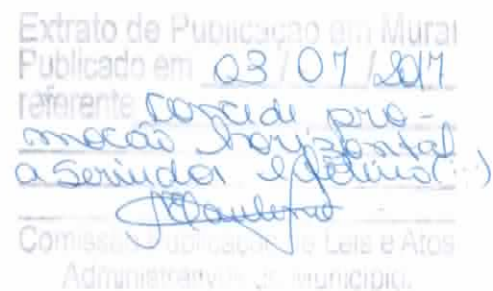 Extrato de Publicação em Mural
Publicado em 03/07/2017
referente concede pro-
moção horizontal
a Servidor efetivo(...)
Comissão Publicação de Leis e Atos
Administrativos do Município.